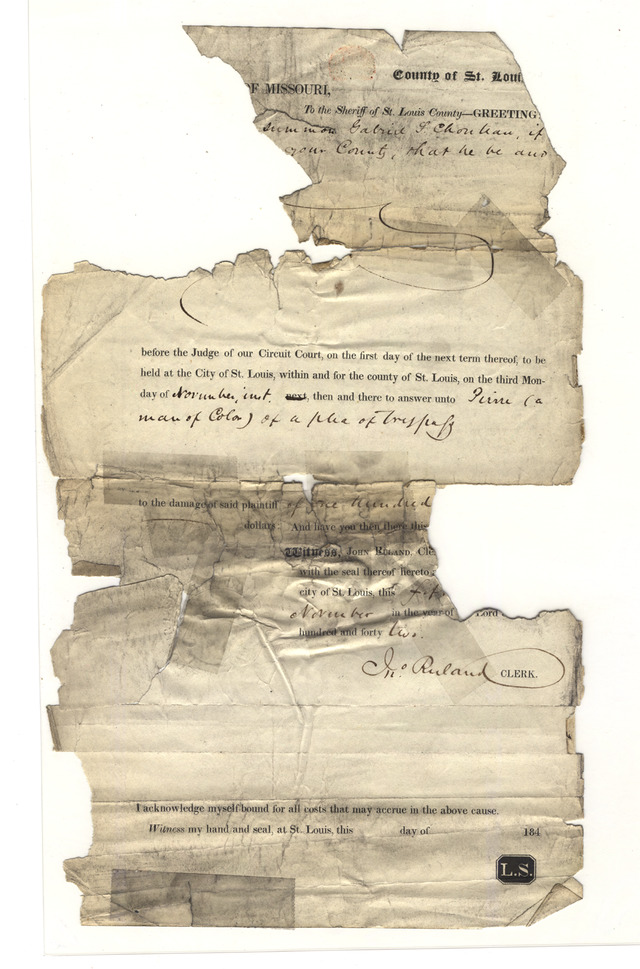 County of St. Loui
OF MISSOURI,
To the Sheriff of St. Louis County—GREETING
summon Gabriel S Chouteau, if
your County, that he be and
before the Judge of our Circuit Court, on the first day of the next term thereof, to be
held at the City of St. Louis, within and for the county of St. Louis, on the third Mon-
day of November, inst. next, then and there to answer unto Pierre (a
man of Color) of a plea of trespass
to the damage of said plaintiff of one hundred
dollars: And have you then there this
Witness, JOHN RULAND, Cle
with the seal thereof hereto
city of St. Louis, this
November in the year of Lord
hundred and forty two.
Jno Ruland CLERK.
I acknowledge myself bound for all costs that may accrue in the above cause.
Witness my hand and seal, at St. Louis, this day of 184
L.S.